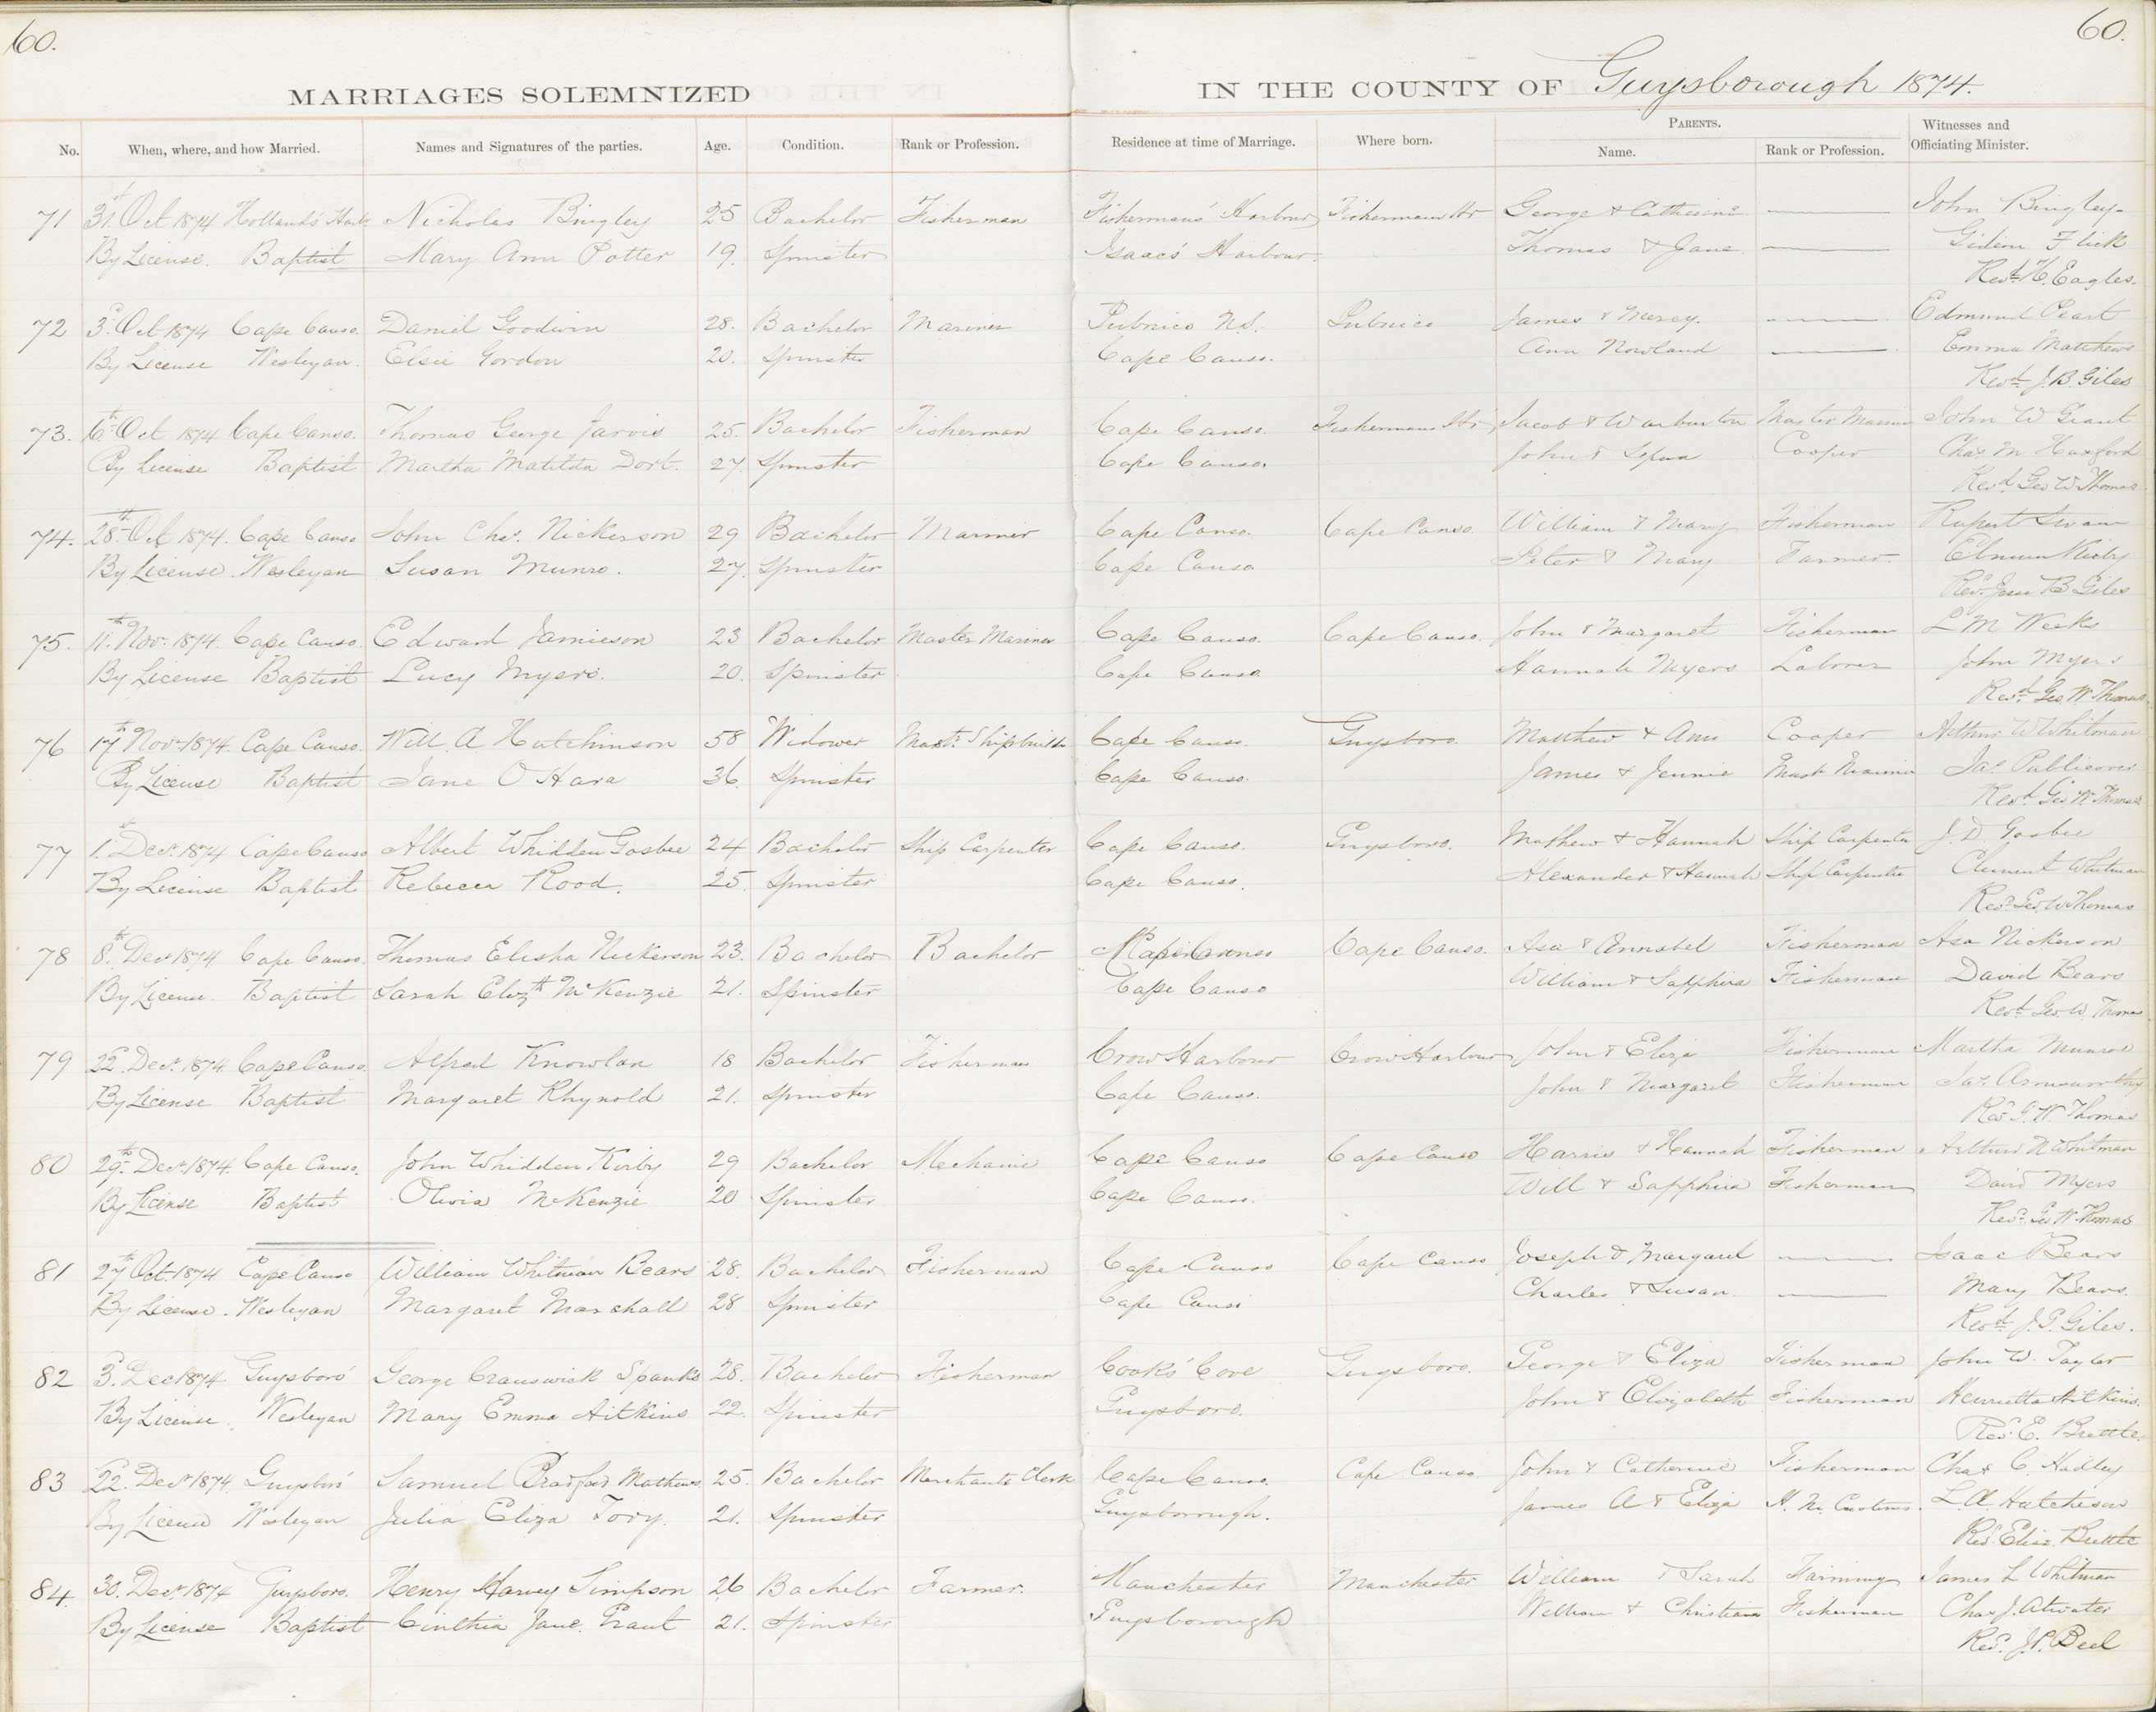 60.
60.
MARRIAGES SOLEMNIZED
IN THE COUNTY OF Guysborough 1874.
No. When, where, and how Married. Names and Signatures of the parties. Age. Condition. Rank or Profession. Residence at time of Marriage. Where born. PARENTS. Name. Rank or Profession. Witnesses and Officiating Minister.
71 31st Oct 1874 Nicholas Bingley 25 Bachelor Fisherman Fishermans' Harbour Fishermans Hr George & Catherine John Bingley
By License. Baptist Mary Ann Potter 19. Spinster Isaacs' Harbour. Thomas & Jane Gideon Flick
Revd. H. Eagles.
72 3d. Oct 1874 Cape Canso. Daniel Goodwin 28. Bachelor Mariner Pubnico N.S. Pubnico James & Mercy. Edmund Peart
By License Wesleyan. Elsie Gordon 20. Spinster Cape Canso. Ann Nowland Emma Matthews
Revd. J. B. Giles
73. 6th Oct 1874 Cape Canso. Thomas George Jarvis 25. Bachelor Fisherman Cape Canso. Fishermans Hr Jacob & Warburton Master Marin John W Grant
By License Baptist Martha Matilda Dort. 27. Spinster Cape Canso. John & Cooper Chas M
Revd. Geo W Thomas
74. 28th Oct 1874. Cape Canso John Chs. Nickerson 29 Bachelor Mariner Cape Canso. Cape Canso. William & Mary Fisherman Rupert Swain
By License. Wesleyan Susan Munro. 27. Spinster Cape Canso Peter & Mary Farmer. Kirby
Rev. B Giles
75. 11th Nov. 1874. Cape Canso. Edward Jamieson 23 Bachelor Master Mariner Cape Canso. Cape Canso. John & Margaret Fisherman L M Weeks
By License Baptist Lucy Myers. 20. Spinster Cape Canso Hannah Myers Laborer John Myers
Revd. Geo W. Thomas
76 17th Nov. 1874. Cape Canso. Will. A Hutchinson 58 Widower Mastr. Shipbuildr Cape Canso. Guysboro. Matthew & Ann Cooper Arthur W Whitman
By License Baptist Jane O Hara 36. Spinster Cape Canso. James & Jennie Mast Marine Jas Publicover
Revd. Geo W. Thomas
77 1st. Decr. 1874 Cape Canso Albert Whidden Gosbee 24 Bachelor Ship Carpenter Cape Canso. Guysboro. Mathew & Hannah Ship Carpenter J. D. Gosbee
By License Baptist Rebecca Rood. 25. Spinster Cape Canso. Alexander & Hannah Ship Carpenter Clement Whitman
Revd. Geo. W Thomas
78 8th. Decr 1874 Cape Canso. Thomas Elisha Nickerson 23. Bachelor Bachelor Cape Canso Cape Canso. Asa & Annabel Fisherman Asa Nickerson
By License. Baptist Sarah Elizth McKenzie 21. Spinster Cape Canso William & Sapphira Fisherman David Bears
Revd. Geo. W. Thomas
79 22d. Decr. 1874 Cape Canso. Alfred Knowlan 18 Bachelor Fisherman Crow Harbour Crow Harbour John & Eliza Fisherman Martha Munroe
By License Baptist Margaret Rhynold 21. Spinster Cape Canso. John & Margaret Fisherman Jas. Armsworthy
Revd G. W Thomas
80 29th. Decr. 1874 Cape Canso. John Whidden Kirby 29 Bachelor Mechanic Cape Canso Cape Canso Harris & Hannah Fisherman Arthur W Whitman
By License Baptist Olivia McKenzie 20 Spinster Cape Canso. Will & Sapphira Fisherman David Myers
Revd. Geo W. Thomas
81 27th Oct. 1874 Cape Canso William Whitman Bears 28. Bachelor Fisherman Cape Canso Cape Canso Joseph & Margaret Isaac Bears
By License. Wesleyan Margaret Marshall 28 Spinster Cape Canso Charles & Susan. Mary Bears.
Revd. J. Giles.
82 3d. Dec 1874 Guysboro' George Cranswick Spanks 28. Bachelor Fisherman Cooks' Cove Guysboro. George & Eliza Fisherman John W. Taylor
By License. Wesleyan Mary Emma Aitkins 22. Spinster Guysboro. John & Elizabeth Fisherman Henrietta Aitkins.
Revd. E. Brettle.
83 22d. Decr 1874. Guysboro' Samuel Bradford Mathews 25. Bachelor Merchants Clerk Cape Canso. Cape Canso. John & Catherine Fisherman Chas C. Hadley
By License Wesleyan Julia Eliza Tory. 21. Spinster Guysborough. James A & Eliza H. M. Customs. L. A Hutcheson
Revd. Elias Brettle
84. 30. Decr. 1874 Guysboro. Henry Harvey Simpson 26 Bachelor Farmer. Manchester Manchester William & Sarah Farming James L Whitman
By License Baptist Cinthia Jane Grant 21. Spinster Guysborough William & Christiana Fisherman Chas J. Atwater
Revd. J. Beel